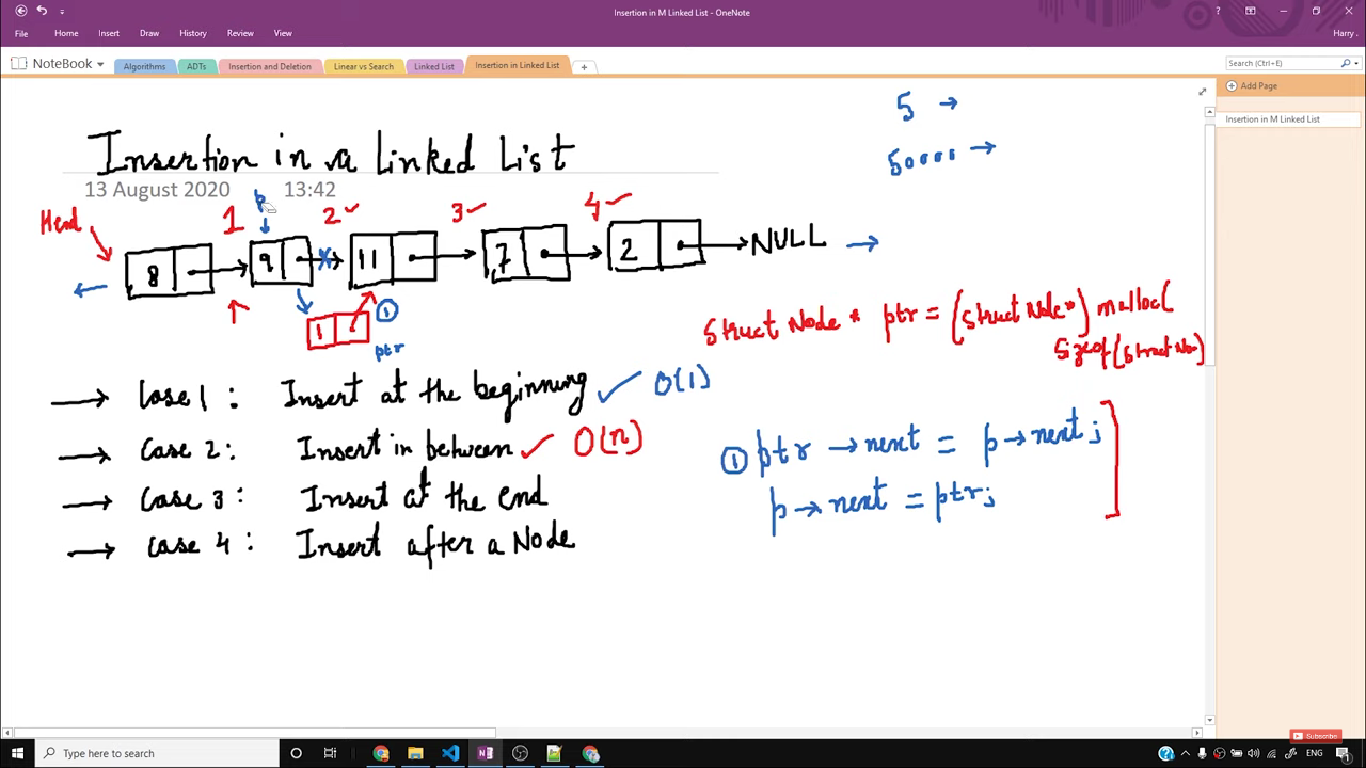 Insertion in M Linked List - OneNote
?
Harry .
File Home Insert Draw History Review View
NoteBook Algorithms ADTs Insertion and Deletion Linear vs Search Linked List Insertion in Linked List +
Search (Ctrl+E)
Add Page
Insertion in M Linked List
5 →
50000 →
Insertion in a Linked List
13 August 2020 13:42
Head 1 p 2 ✓ 3 ✓ 4 ✓
8 9 11 7 2 NULL
1 ① ptr
Struct Node * ptr = (Struct Node*) malloc(
Sizeof(Struct No)
Case 1 : Insert at the beginning ✓ O(1)
Case 2: Insert in between ✓ O(n)
Case 3 : Insert at the end
Case 4 : Insert after a Node
① ptr → next = p → next ;
p → next = ptr;
Subscribe
Type here to search
ENG